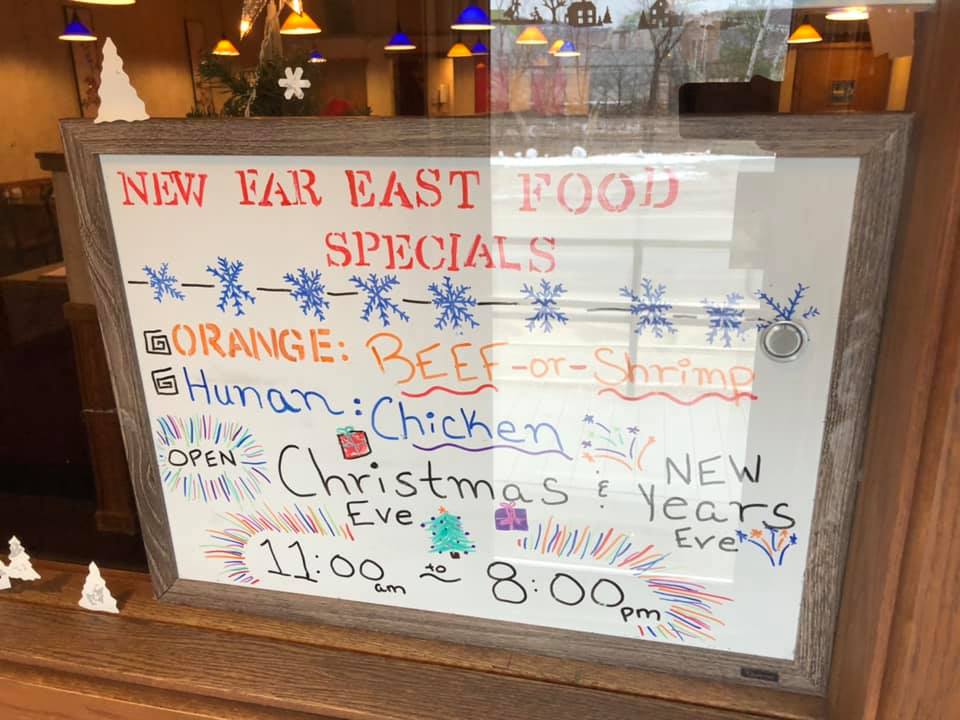 NEW FAR EAST FOOD
SPECIALS
ORANGE: BEEF-or-Shrimp
Hunan: Chicken
OPEN Christmas Eve & NEW Years Eve
11:00am to 8:00pm